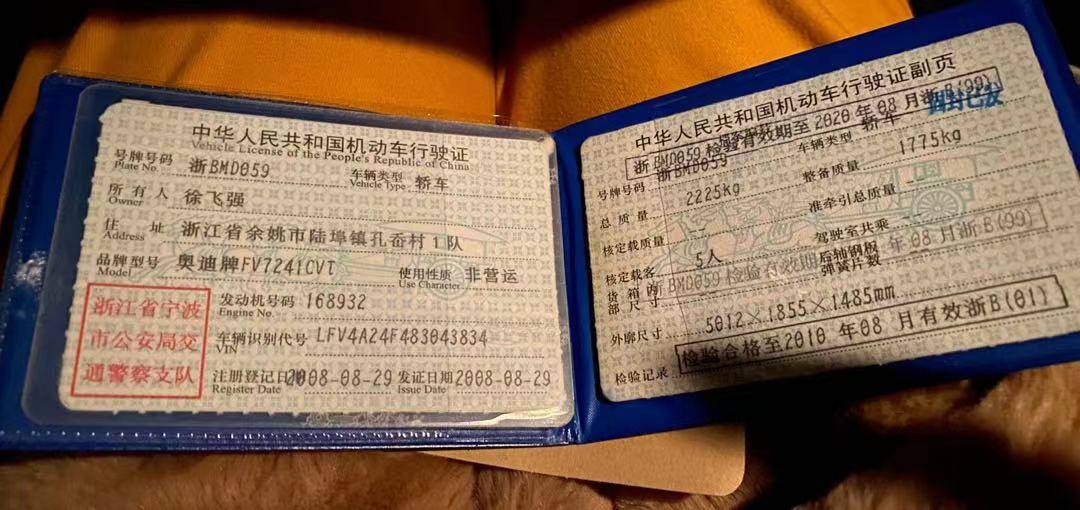 中华人民共和国机动车行驶证
Vehicle License of the People's Republic of China
号牌号码 浙BMD059 车辆类型 轿车
Plate No. Vehicle Type
所有人 徐飞强
Owner
住址 浙江省余姚市陆埠镇孔岙村1队
Address
品牌型号 奥迪牌FV7241CVT 使用性质 非营运
Model Use Character
浙江省宁波
市公安局交
通警察支队
发动机号码 168932
Engine No.
车辆识别代号 LFV4A24F483043834
VIN
注册登记日期 2008-08-29 发证日期 2008-08-29
Register Date Issue Date
中华人民共和国机动车行驶证副页
浙BMD059 检验有效期至 2020 年 08 月浙B(99)
号牌号码 浙BMD059 车辆类型 轿车
总质量 2225kg 整备质量 1775kg
核定载质量 准牵引总质量
核定载客 5人 驾驶室共乘
货箱内部尺寸 后轴钢板弹簧片数
浙BMD059 检验有效期 年 08 月浙B(99)
外廓尺寸 5012×1855×1485mm
检验记录 检验合格至2010 年 08 月有效浙B(01)